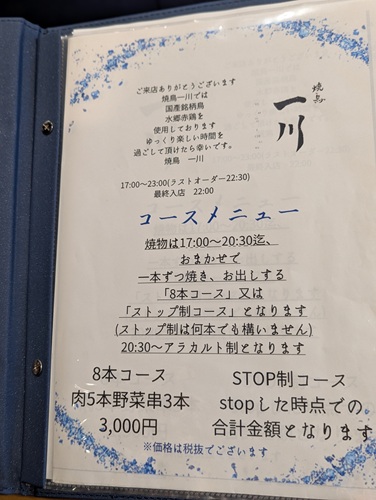 ご来店ありがとうございます
焼鳥一川では
国産銘柄鳥
水郷赤鶏を
使用しております
ゆっくり楽しい時間を
過ごして頂けたら幸いです。
焼鳥 一川
焼鳥
一川
17:00〜23:00(ラストオーダー22:30)
最終入店 22:00
コースメニュー
焼物は17:00〜20:30迄、
おまかせで
一本ずつ焼き、お出しする
「8本コース」又は
「ストップ制コース」となります
(ストップ制は何本でも構いません)
20:30〜アラカルト制となります
8本コース
肉5本野菜串3本
3,000円
STOP制コース
stopした時点での
合計金額となります
※価格は税抜でございます